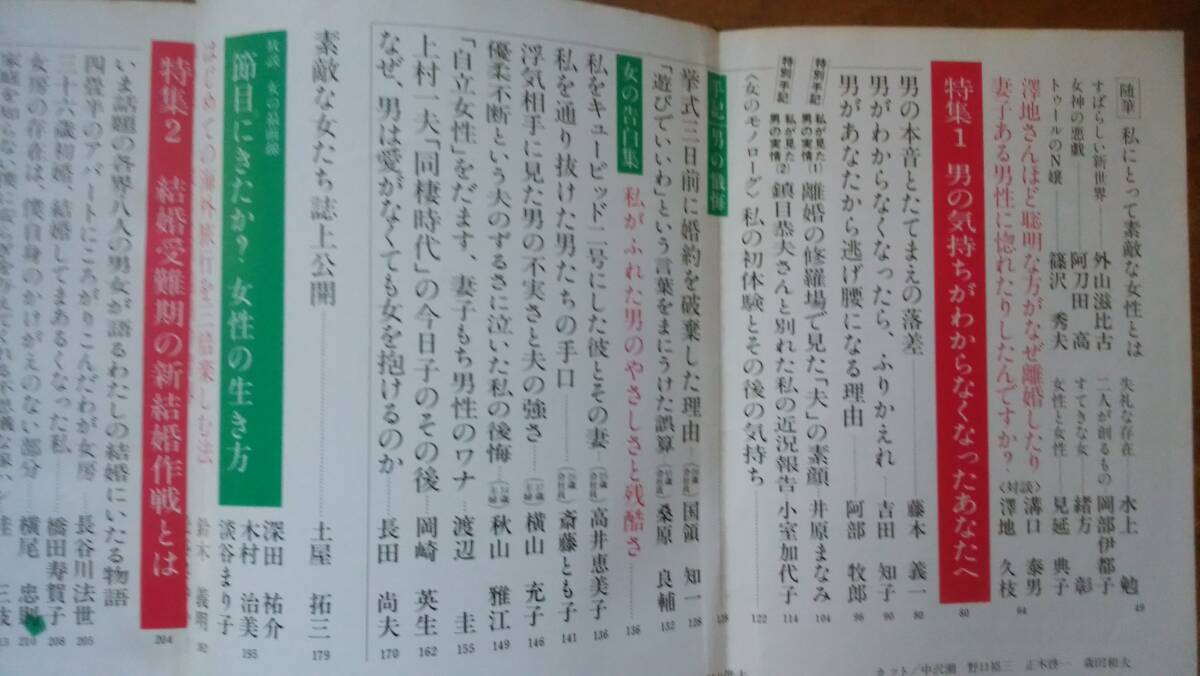 随筆 私にとって素敵な女性とは
すばらしい新世界 外山滋比古
女神の悪戯 阿刀田 高
トゥールのN嬢 篠沢 秀夫
失礼な存在 水上 勉
二人が創るもの 岡部伊都子
すてきな女 緒方 彰
女性と女性 見延 典子 49
澤地さんほど聡明な方がなぜ離婚したり
妻子ある男性に惚れたりしたんですか?
〈対談〉溝口 泰男
澤地 久枝 64
特集1 男の気持ちがわからなくなったあなたへ 80
男の本音とたてまえの落差 藤本 義一 80
男がわからなくなったら、ふりかえれ 吉田 知子 90
男があなたから逃げ腰になる理由 阿部 牧郎 96
特別手記 私が見た男の実情(1) 離婚の修羅場で見た「夫」の素顔 井原まなみ 104
特別手記 私が見た男の実情(2) 鎮目恭夫さんと別れた私の近況報告 小室加代子 114
〈女のモノローグ〉私の初体験とその後の気持ち 122
手記 男の懺悔 128
挙式三日前に婚約を破棄した理由 国領 知一 128
「遊びでいいわ」という言葉をまにうけた誤算 桑原 良輔 132
女の告白集 私がふれた男のやさしさと残酷さ 136
私をキューピッド二号にした彼とその妻 高井恵美子 136
私を通り抜けた男たちの手口 斎藤とも子 141
浮気相手に見た男の不実さと夫の強さ 横山 充子 146
優柔不断という夫のずるさに泣いた私の後悔 秋山 雅江 149
「自立女性」をだます、妻子もち男性のワナ 渡辺 圭 155
上村一夫「同棲時代」の今日子のその後 岡崎 英生 162
なぜ、男は愛がなくても女を抱けるのか 長田 尚夫 170
素敵な女たち誌上公開 土屋 拓三 179
放談 女の最前線
節目にきたか?女性の生き方
深田 祐介
木村 治美
淡谷まり子 195
はじめての海外旅行を三倍楽しむ法 鈴木 義明
特集2 結婚受難期の新結婚作戦とは 204
いま話題の各界八人の男女が語るわたしの結婚にいたる物語
四畳半のアパートにころがりこんだわが女房 長谷川法世 205
三十六歳初婚、結婚してまあるくなった私 橋田寿賀子 208
女房の存在は、僕自身のかけがえのない部分 横尾 忠則 210
カット/中沢潮 野口裕三 正木啓一 森田和夫